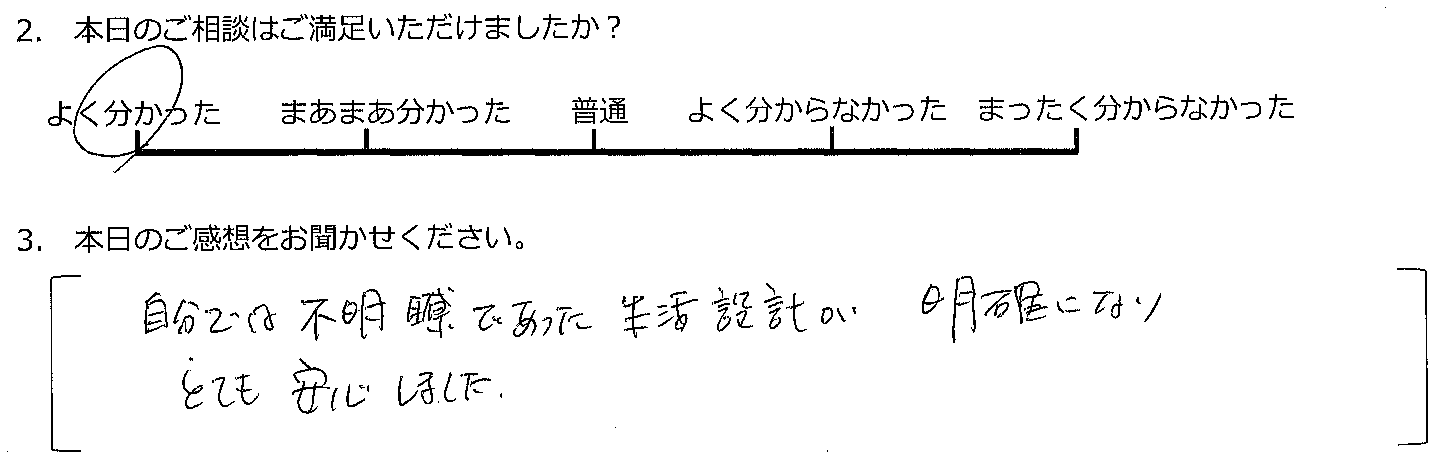 2. 本日のご相談はご満足いただけましたか？
よく分かった　まあまあ分かった　普通　よく分からなかった　まったく分からなかった
3. 本日のご感想をお聞かせください。
自分では不明瞭であった生活設計が　明確になり
とても安心しました.